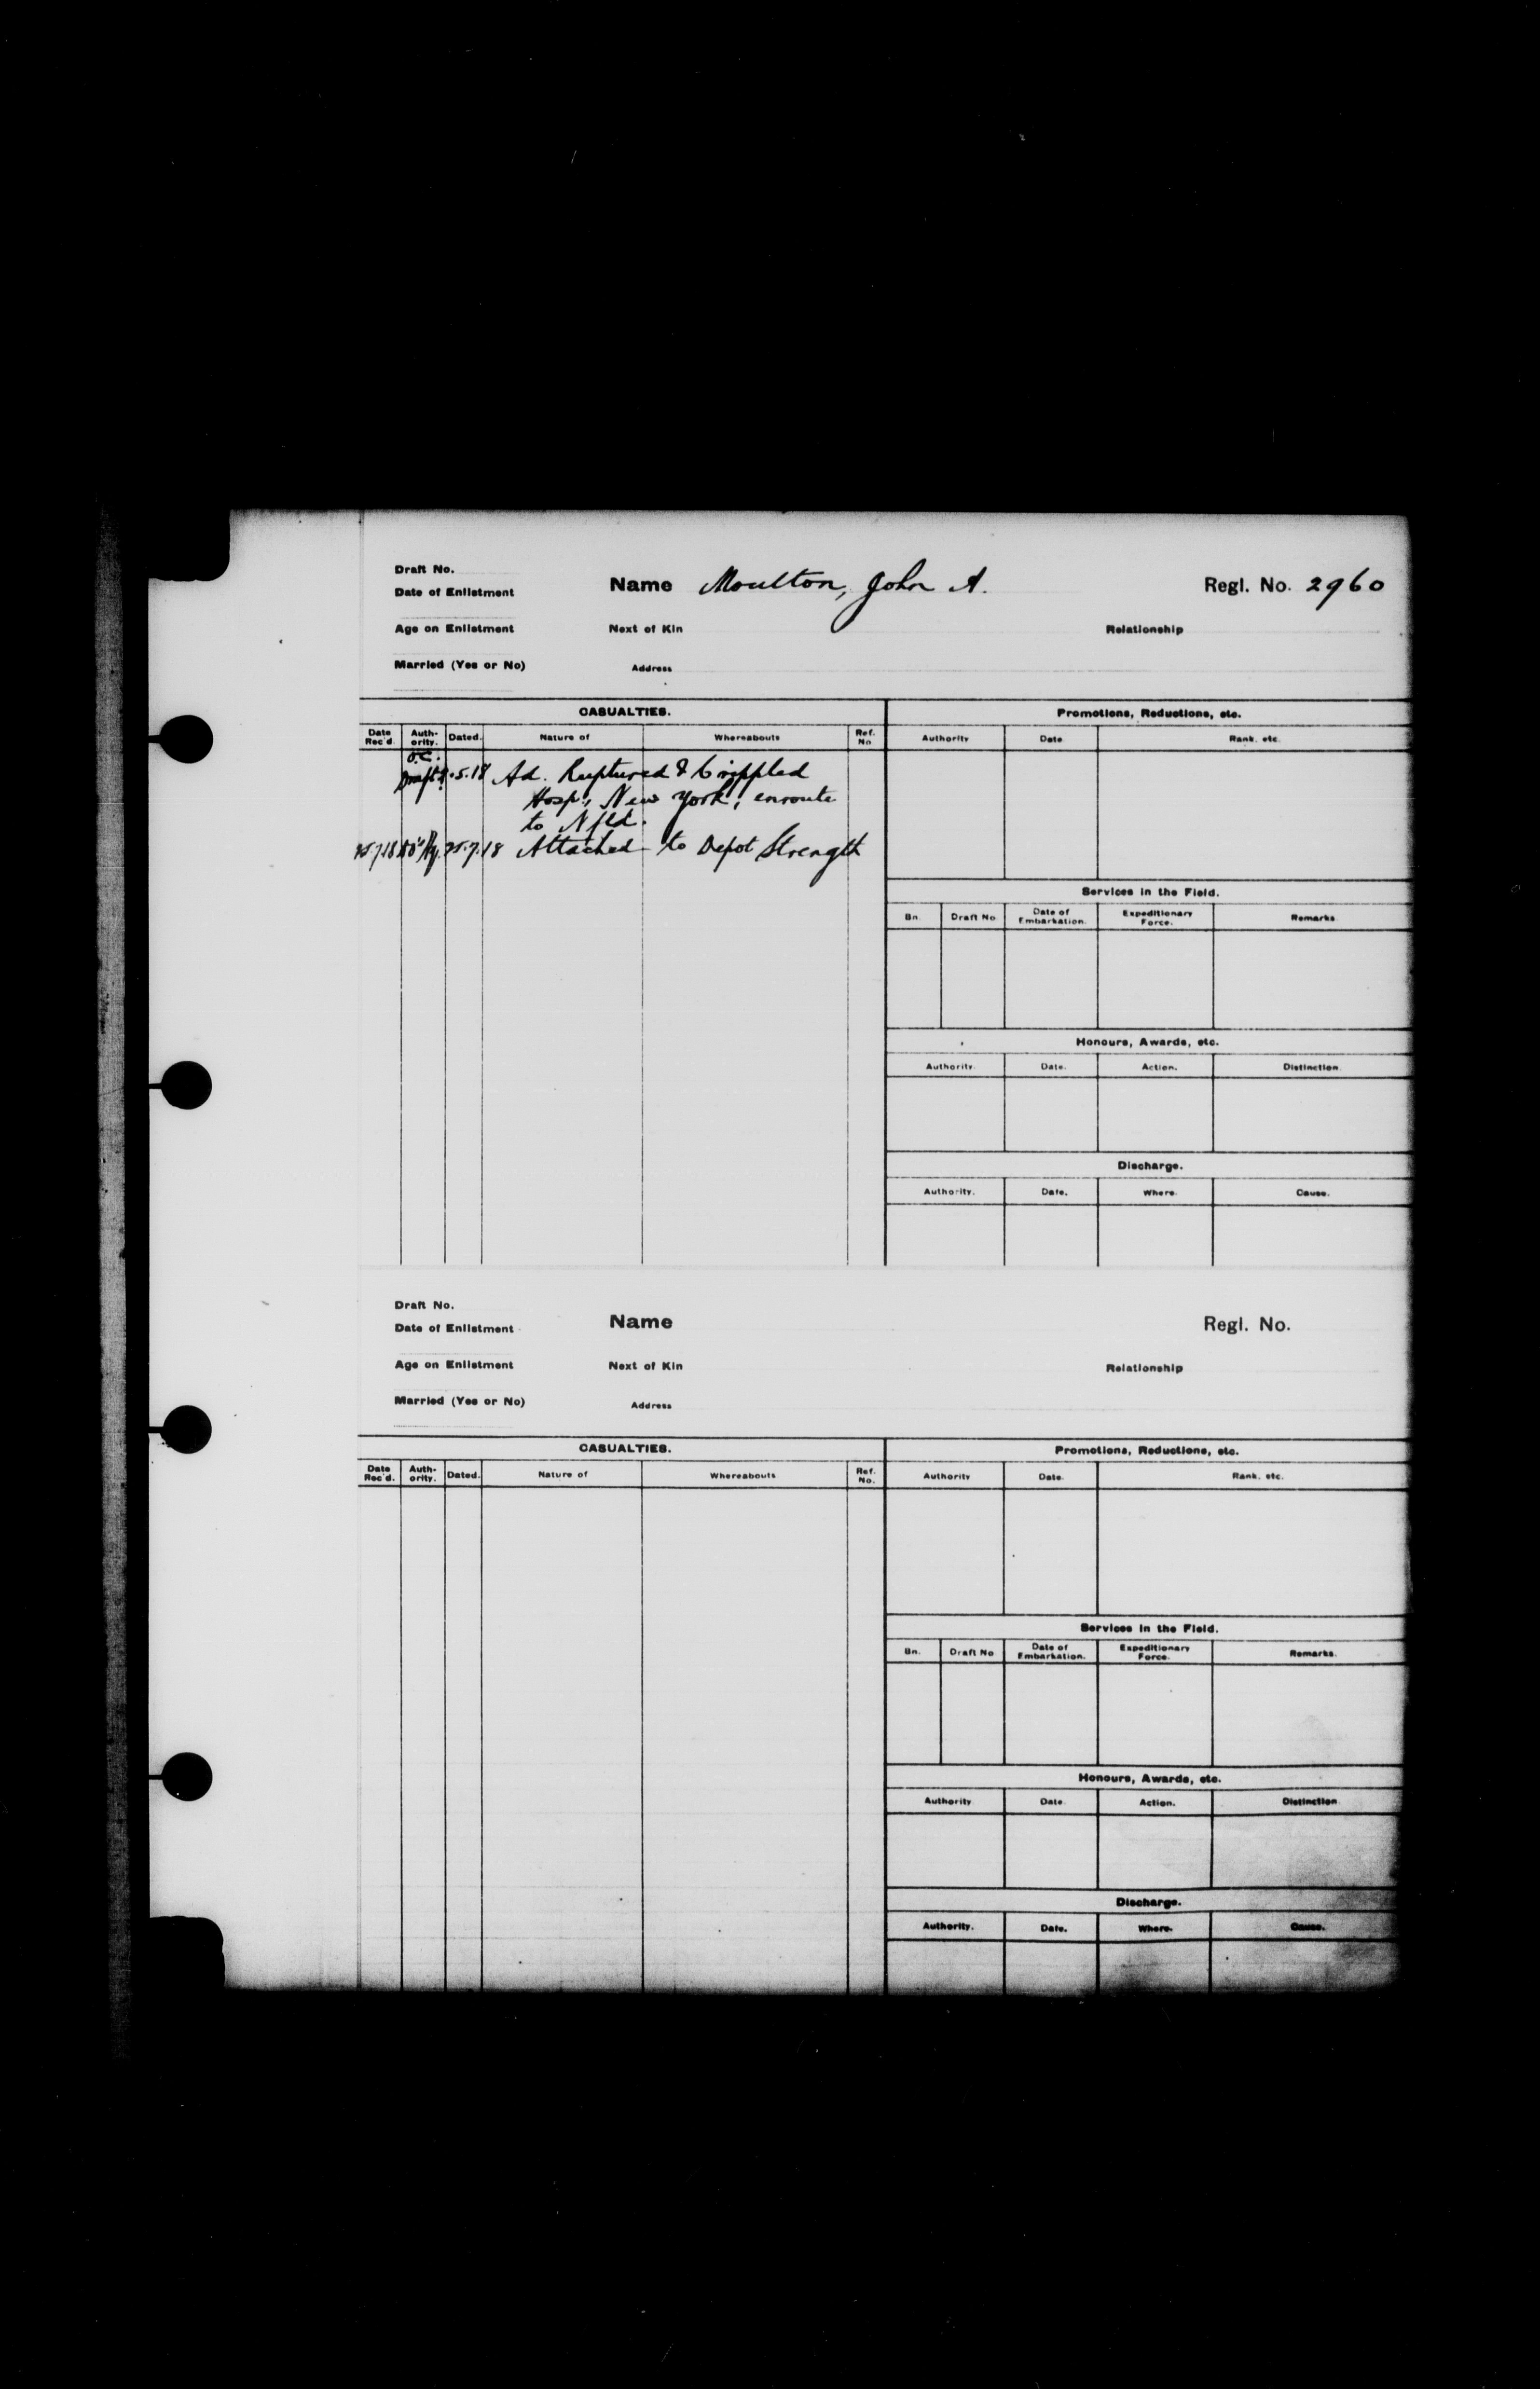 Draft No.
Name Moulton, John A. Regl. No. 2960
Date of Enlistment
Age on Enlistment Next of Kin Relationship
Married (Yes or No) Address
CASUALTIES. Promotions, Reductions, etc.
Date Rec'd. Auth-ority. Dated. Nature of Whereabouts Ref. No Authority Date Rank. etc.
O.C.
Draft .5.18 Ad. Ruptured & Crippled
Hosp., New York, enroute
to Nfld.
25.7.18 25.7.18 Attached to Depot Strength
Services in the Field.
Bn. Draft No Date of Embarkation. Expeditionary Force. Remarks
Honours, Awards, etc.
Authority. Date. Action. Distinction
Discharge.
Authority. Date. Where. Cause.
Draft No.
Name Regl. No.
Date of Enlistment
Age on Enlistment Next of Kin Relationship
Married (Yes or No) Address
CASUALTIES. Promotions, Reductions, etc.
Date Rec'd. Auth-ority. Dated. Nature of Whereabouts Ref. No. Authority Date. Rank. etc.
Services in the Field.
Bn. Draft No Date of Embarkation. Expeditionary Force. Remarks.
Honours, Awards, etc.
Authority Date Action. Distinction
Discharge.
Authority. Date. Where. Cause.